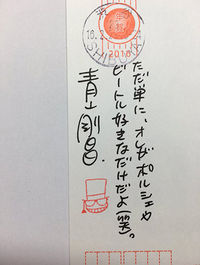 ただ単に、オレがポルシェや
ビートル好きなだけだよ(笑)。
青山剛昌.
SHIBUYA
2016